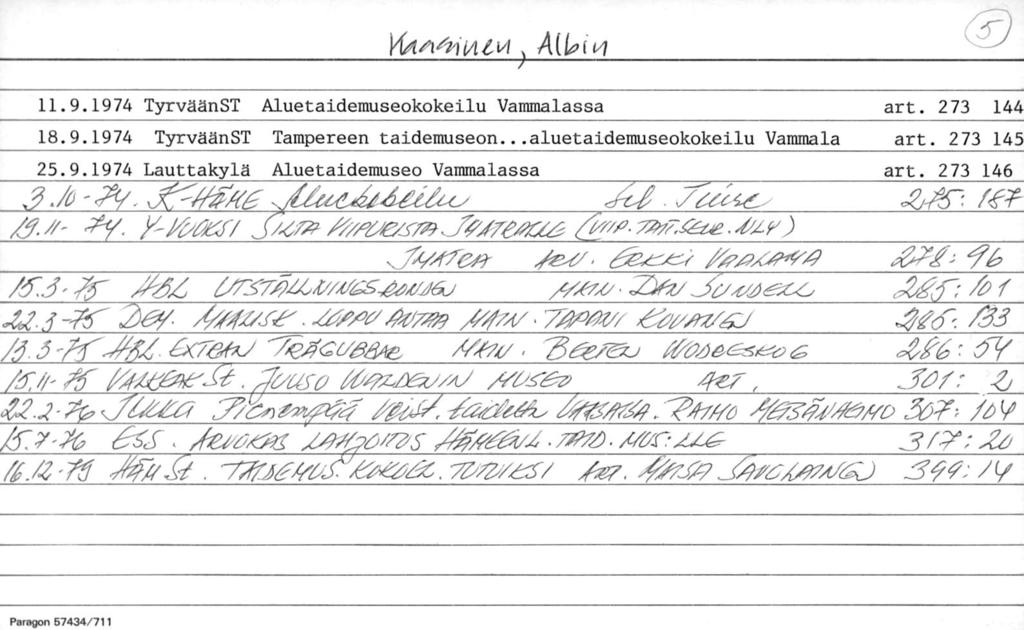 Kaasinen, Albin 5
11.9.1974 TyrväänST Aluetaidemuseokokeilu Vammalassa art. 273 144
18.9.1974 TyrväänST Tampereen taidemuseon...aluetaidemuseokokeilu Vammala art. 273 145
25.9.1974 Lauttakylä Aluetaidemuseo Vammalassa art. 273 146
3.10-74. K-HÄME 275: 187
19.11-74. Y-VUOKSI SILTA VIIPURISTA IMATRALLE (VIIP.TAIT.SEUR.NLY)
IMATRA ARV. ERKKI VAALAMA 278: 96
15.3-75 HBL UTSTÄLLNINGSRONDEN MAIN. DAN SUNDELL 285: 101
22.3-75 DEM. MAALISK. LOPPU ANTAA MAIN. TAPANI KOVANEN 286: 133
13.3-75 HBL.EXTRAN TRÄGUBBAR MAIN. BERTEL WOODESKOG 286: 54
15.11-75 VALKEAK St. JUUSO WALDENIN MUSEO ART. 301: 2
22.2-76 ILKKA Pienempää Veist. taidetta VAASASSA. RAIMO METSÄNHEIMO 307: 104
15.7-76 ESS. ARVOKAS LAHJOITUS HÄMEENL.TAID.MUS:LLE 317: 20
16.12-79 HÄM St. TAIDEMUS. KOKOEL. TUTUIKSI ART. MAISA SAVOLAINEN 399: 14
Paragon 57434/711